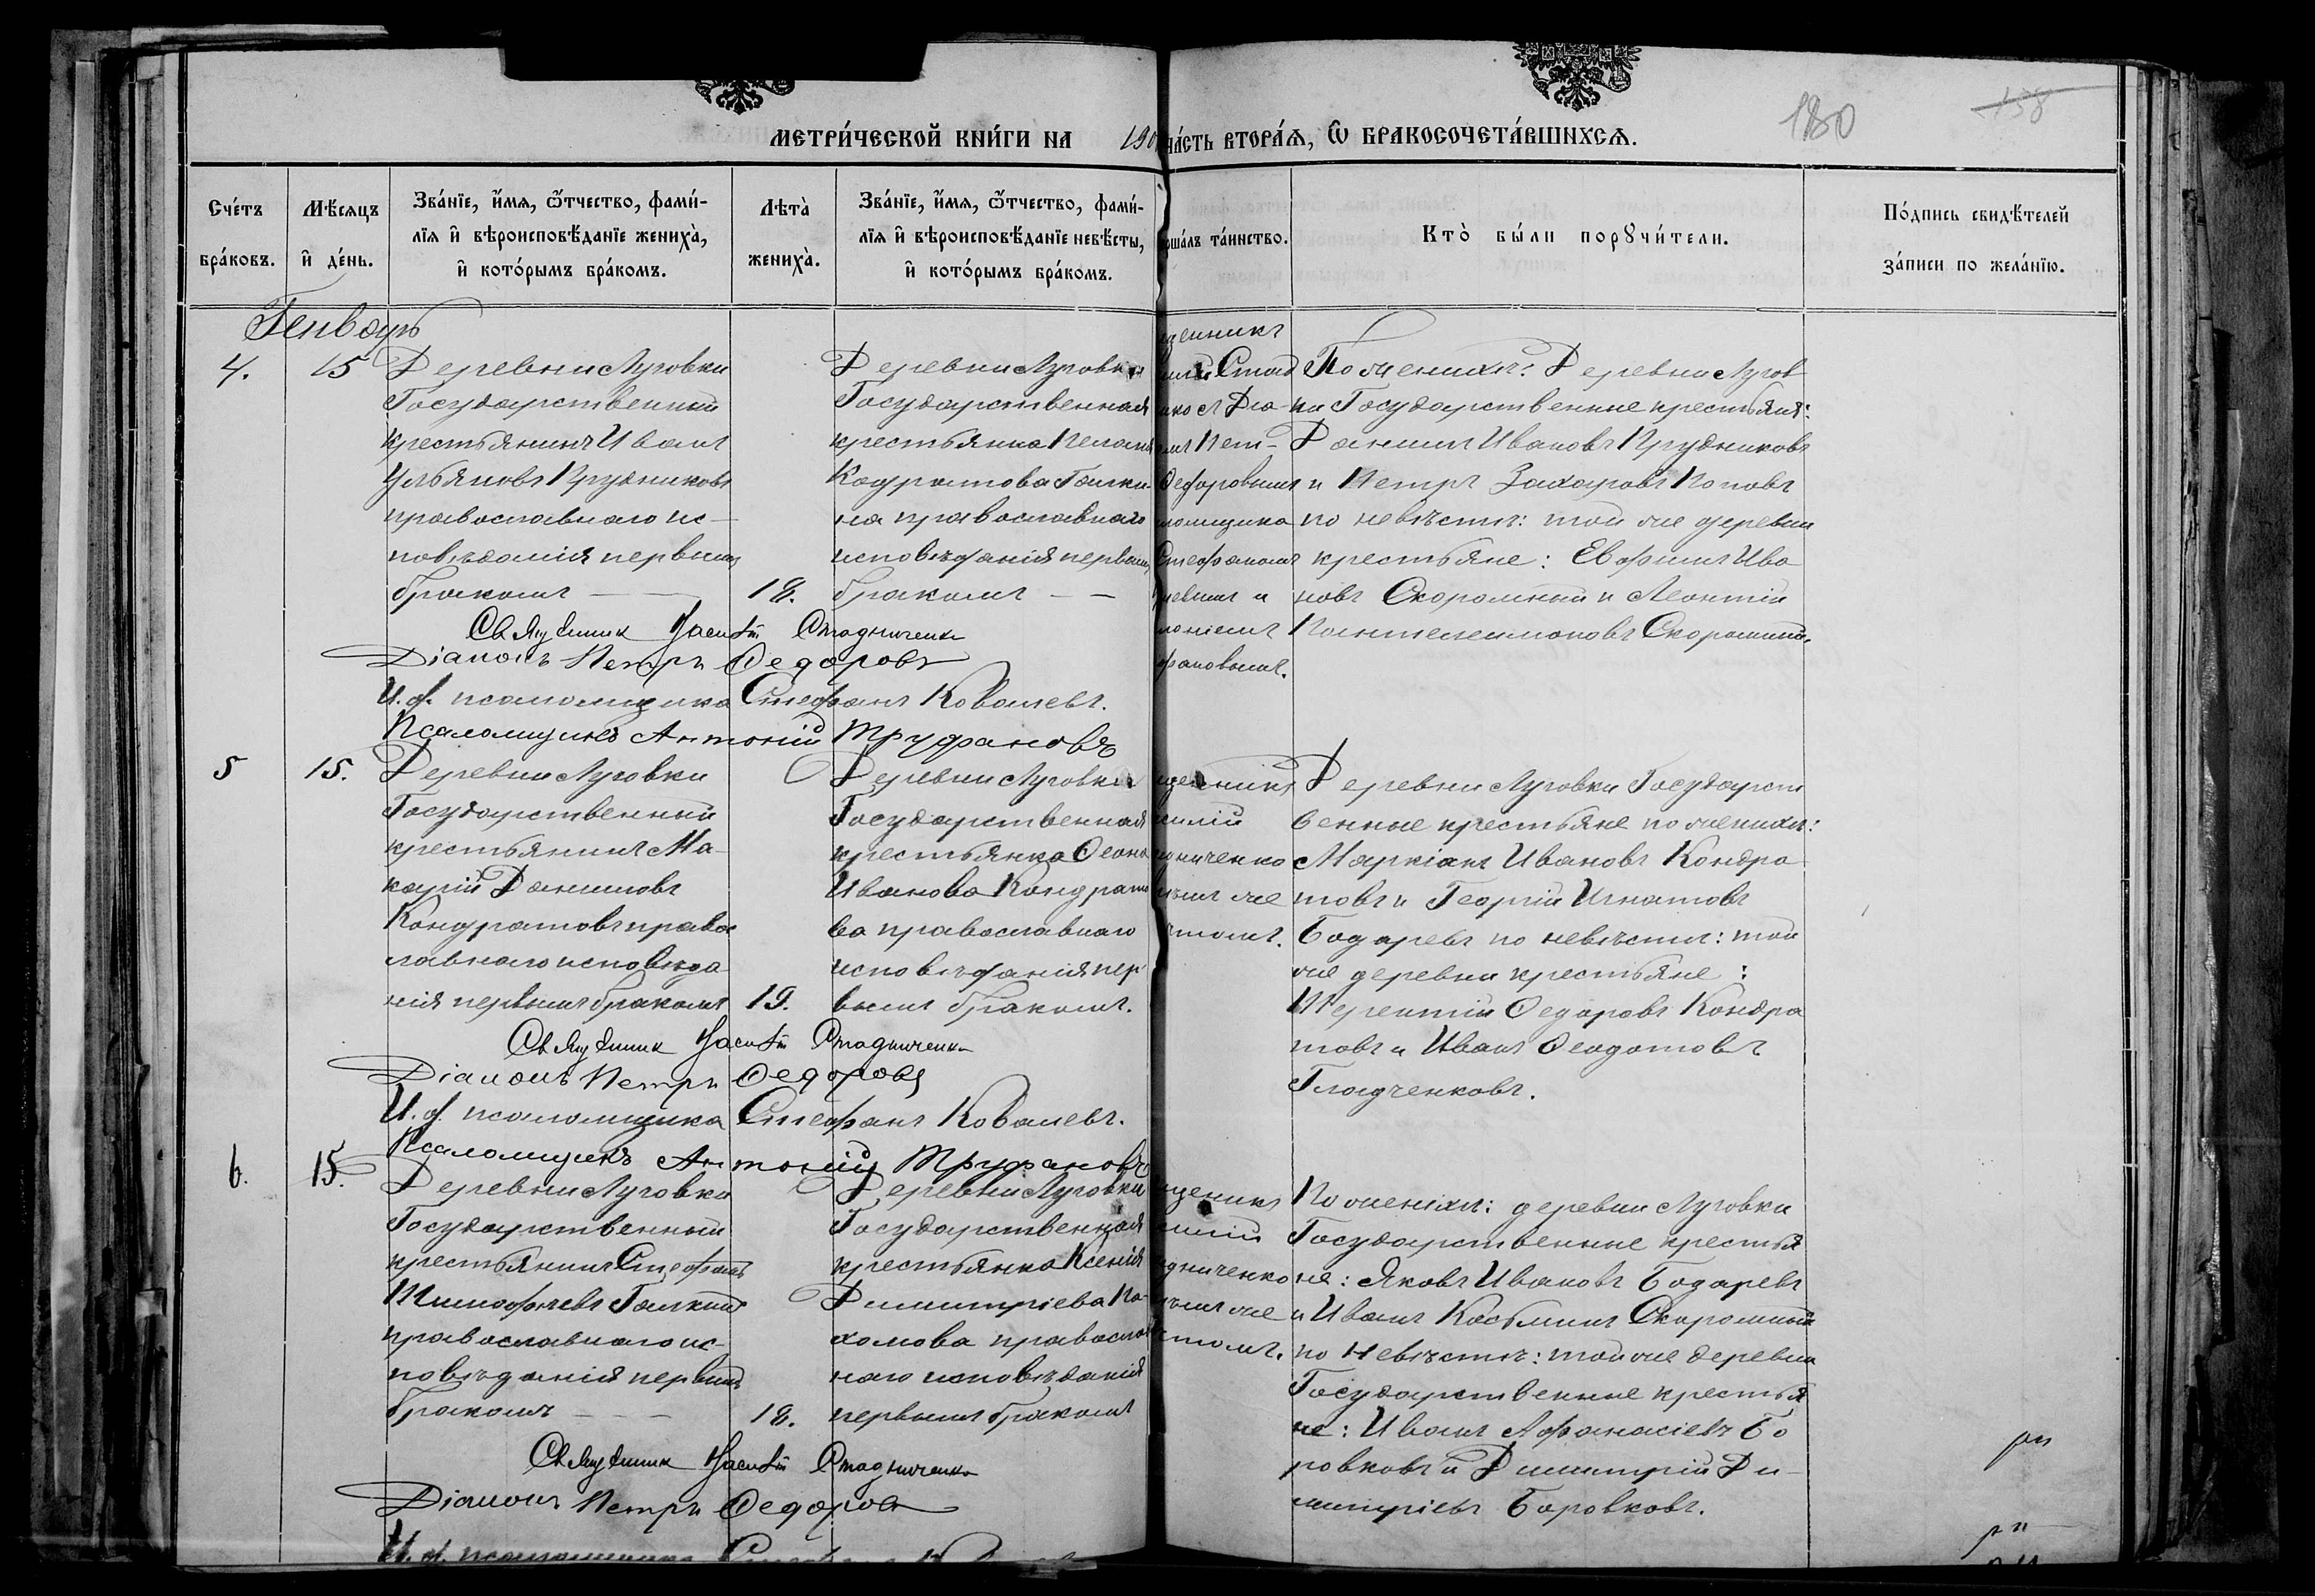 МЕТРИ́ЧЕСКОЙ КНИ́ГИ НА 190
ЧА́СТЬ ВТОРА́Я, Ѿ БРАКОСОЧЕТА́ВШИХСЯ.
180
158
Сче́тъ бра́ковъ.
Мѣ́сяцъ и҆ де́нь.
Зва́нїе, и҆́мя, ѻ҆́тчество, фами́-
лїя и҆ вѣроисповѣ́данїе жениха̀,
и҆ кото́рымъ бра́комъ.
Лѣта̀ жениха̀.
Зва́нїе, и҆́мя, ѻ҆́тчество, фами́-
лїя и҆ вѣроисповѣ́данїе невѣ́сты,
и҆ кото́рымъ бра́комъ.
рша́лъ та́инство.
Кто̀ бы́ли порꙋчи́тели.
По́дпись свидѣ́телей
за́писи по жела́нїю.
Генварь
4.
15
Деревни Луговки
Государственный
крестьянинъ Иванъ
Ульяновъ Прудниковъ
православнаго ис-
повѣданія первымъ
бракомъ
18.
Деревни Луговки
Государственная
крестьянка Пелагія
Кондратова Галки-
на православнаго
исповѣданія первымъ
бракомъ
щенникъ
силій Стад
нко съ Діа-
омъ Пет-
Ѳедоровымъ
ломщика
Стефаномъ
левымъ и
тоніемъ
фановымъ.
По женихѣ: Деревни Лугов
ки Государственные крестьяне:
Даніилъ Ивановъ Прудниковъ
и Петръ Захаровъ Поповъ
по невѣстѣ: той же деревни
крестьяне: Евфимъ Ива
новъ Скоромный и Леонтій
Пантелеимоновъ Скоромный.
Священник Василій Стадниченко
Діаконъ Петръ Ѳедоровъ
И. д. псаломщика Стефанъ Ковалевъ.
Псаломщикъ Антоній Труфановъ
5
15.
Деревни Луговки
Государственный
крестьянинъ Ма-
карій Даниловъ
Кондратовъ правос
лавнаго исповѣда
нія первымъ бракомъ
19.
Деревни Луговки
Государственная
крестьянка Ѳеона
Иванова Кондрато
ва православнаго
исповѣданія пер
вымъ бракомъ.
щенникъ
силій
дниченко
мъ же
чтомъ.
Деревни Луговки Государст
венные крестьяне по женихѣ:
Маркіанъ Ивановъ Кондра
товъ и Георгій Игнатовъ
Бодаревъ по невѣстѣ: той
же деревни крестьяне:
Терентій Ѳедоровъ Кондра
товъ и Иванъ Ѳеодотовъ
Гладченковъ.
Священник Василій Стадниченко
Діаконъ Петръ Ѳедоровъ
И. д. псаломщика Стефанъ Ковалевъ.
Псаломщикъ Антоній Труфановъ
6.
15.
Деревни Луговки
Государственный
крестьянинъ Стефанъ
Тимофѣевъ Галкинъ
православнаго ис-
повѣданія первымъ
бракомъ
18.
Деревни Луговки
Государственная
крестьянка Ксенія
Димитріева Па-
хомова православ
наго исповѣданія
первымъ бракомъ
щеникъ
силій
дниченко
мъ же
чтомъ.
По женихѣ: деревни Луговки
Государственные крестья
не: Яковъ Ивановъ Бодаревъ
и Иванъ Косьминъ Скоромный
по невѣстѣ: той же деревни
Государственные крестья
не: Иванъ Афанасіевъ Бо
ровковъ и Димитрій Ди-
митріевъ Боровковъ.
Священник Василій Стадниченко
Діаконъ Петръ Ѳедоровъ
И. д. псаломщика